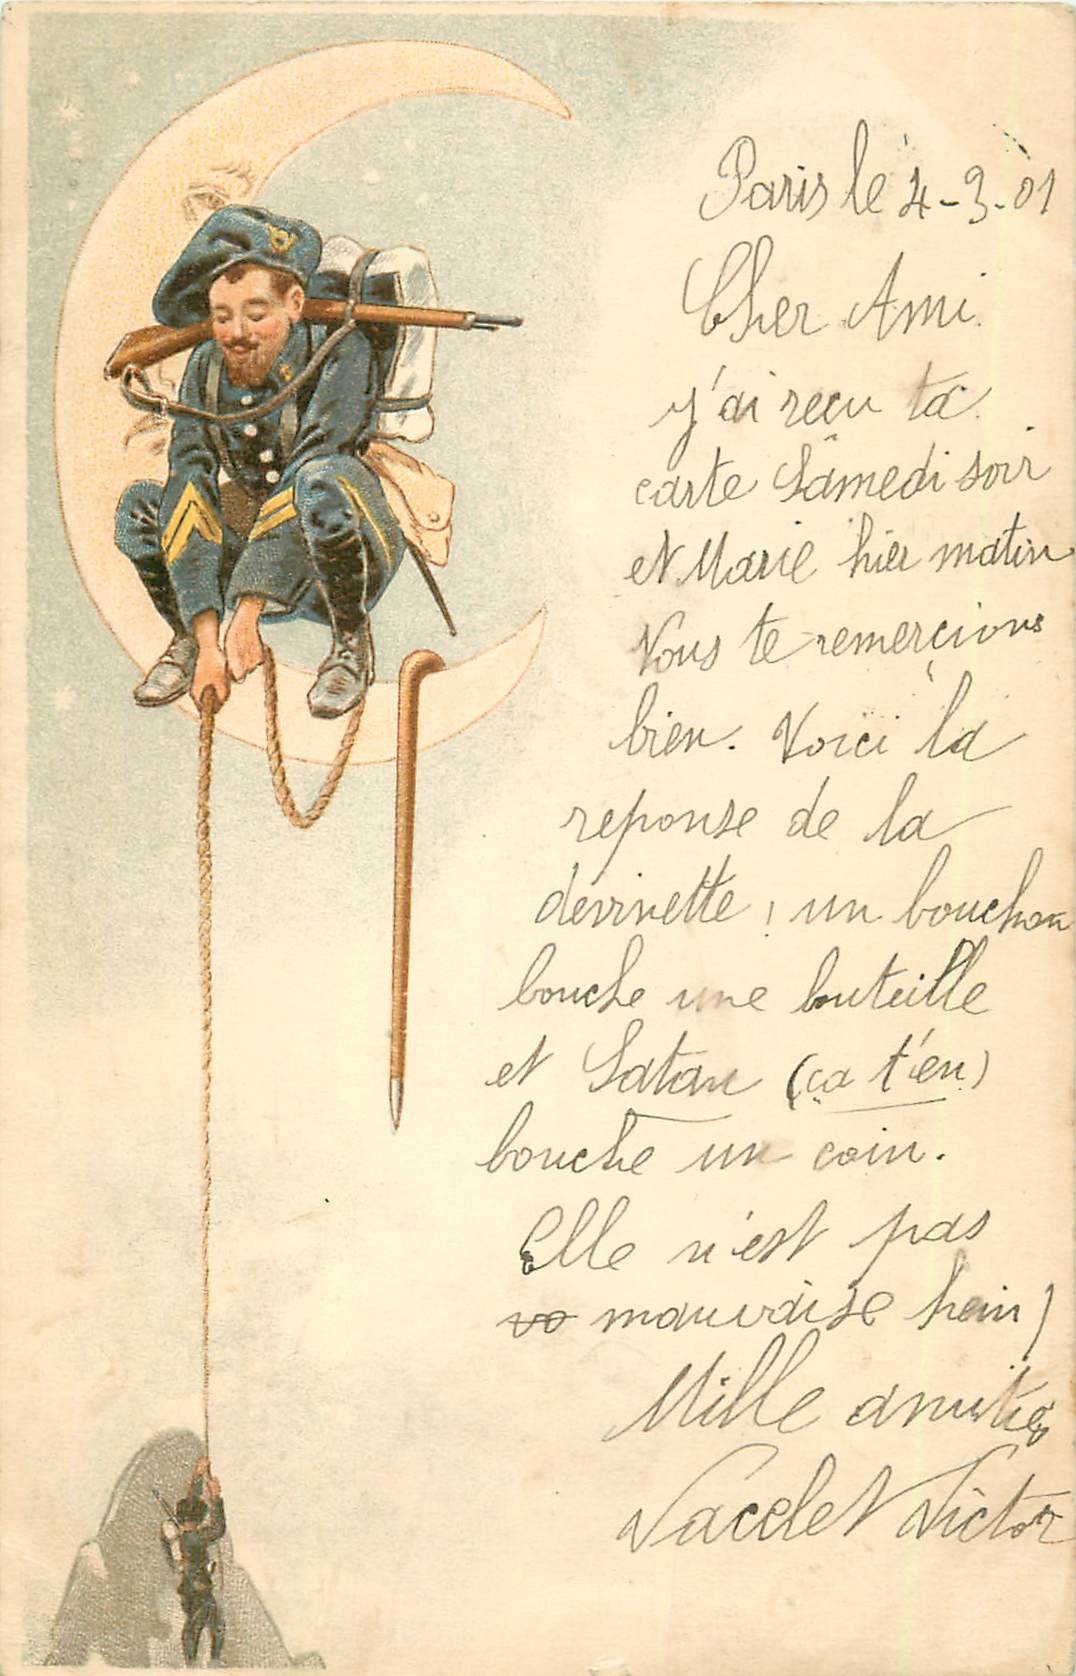 Paris le 4-3-01
Cher Ami.
j'ai reçu ta
carte Samedi soir
et Marie hier matin
Nous te remercions
bien. Voici la
reponse de la
devinette ; un bouchon
bouche une bouteille
et Satan (ça t'en)
bouche un coin.
Elle n'est pas
vo mauvaise hein !
Mille amities
Vacelet Victor